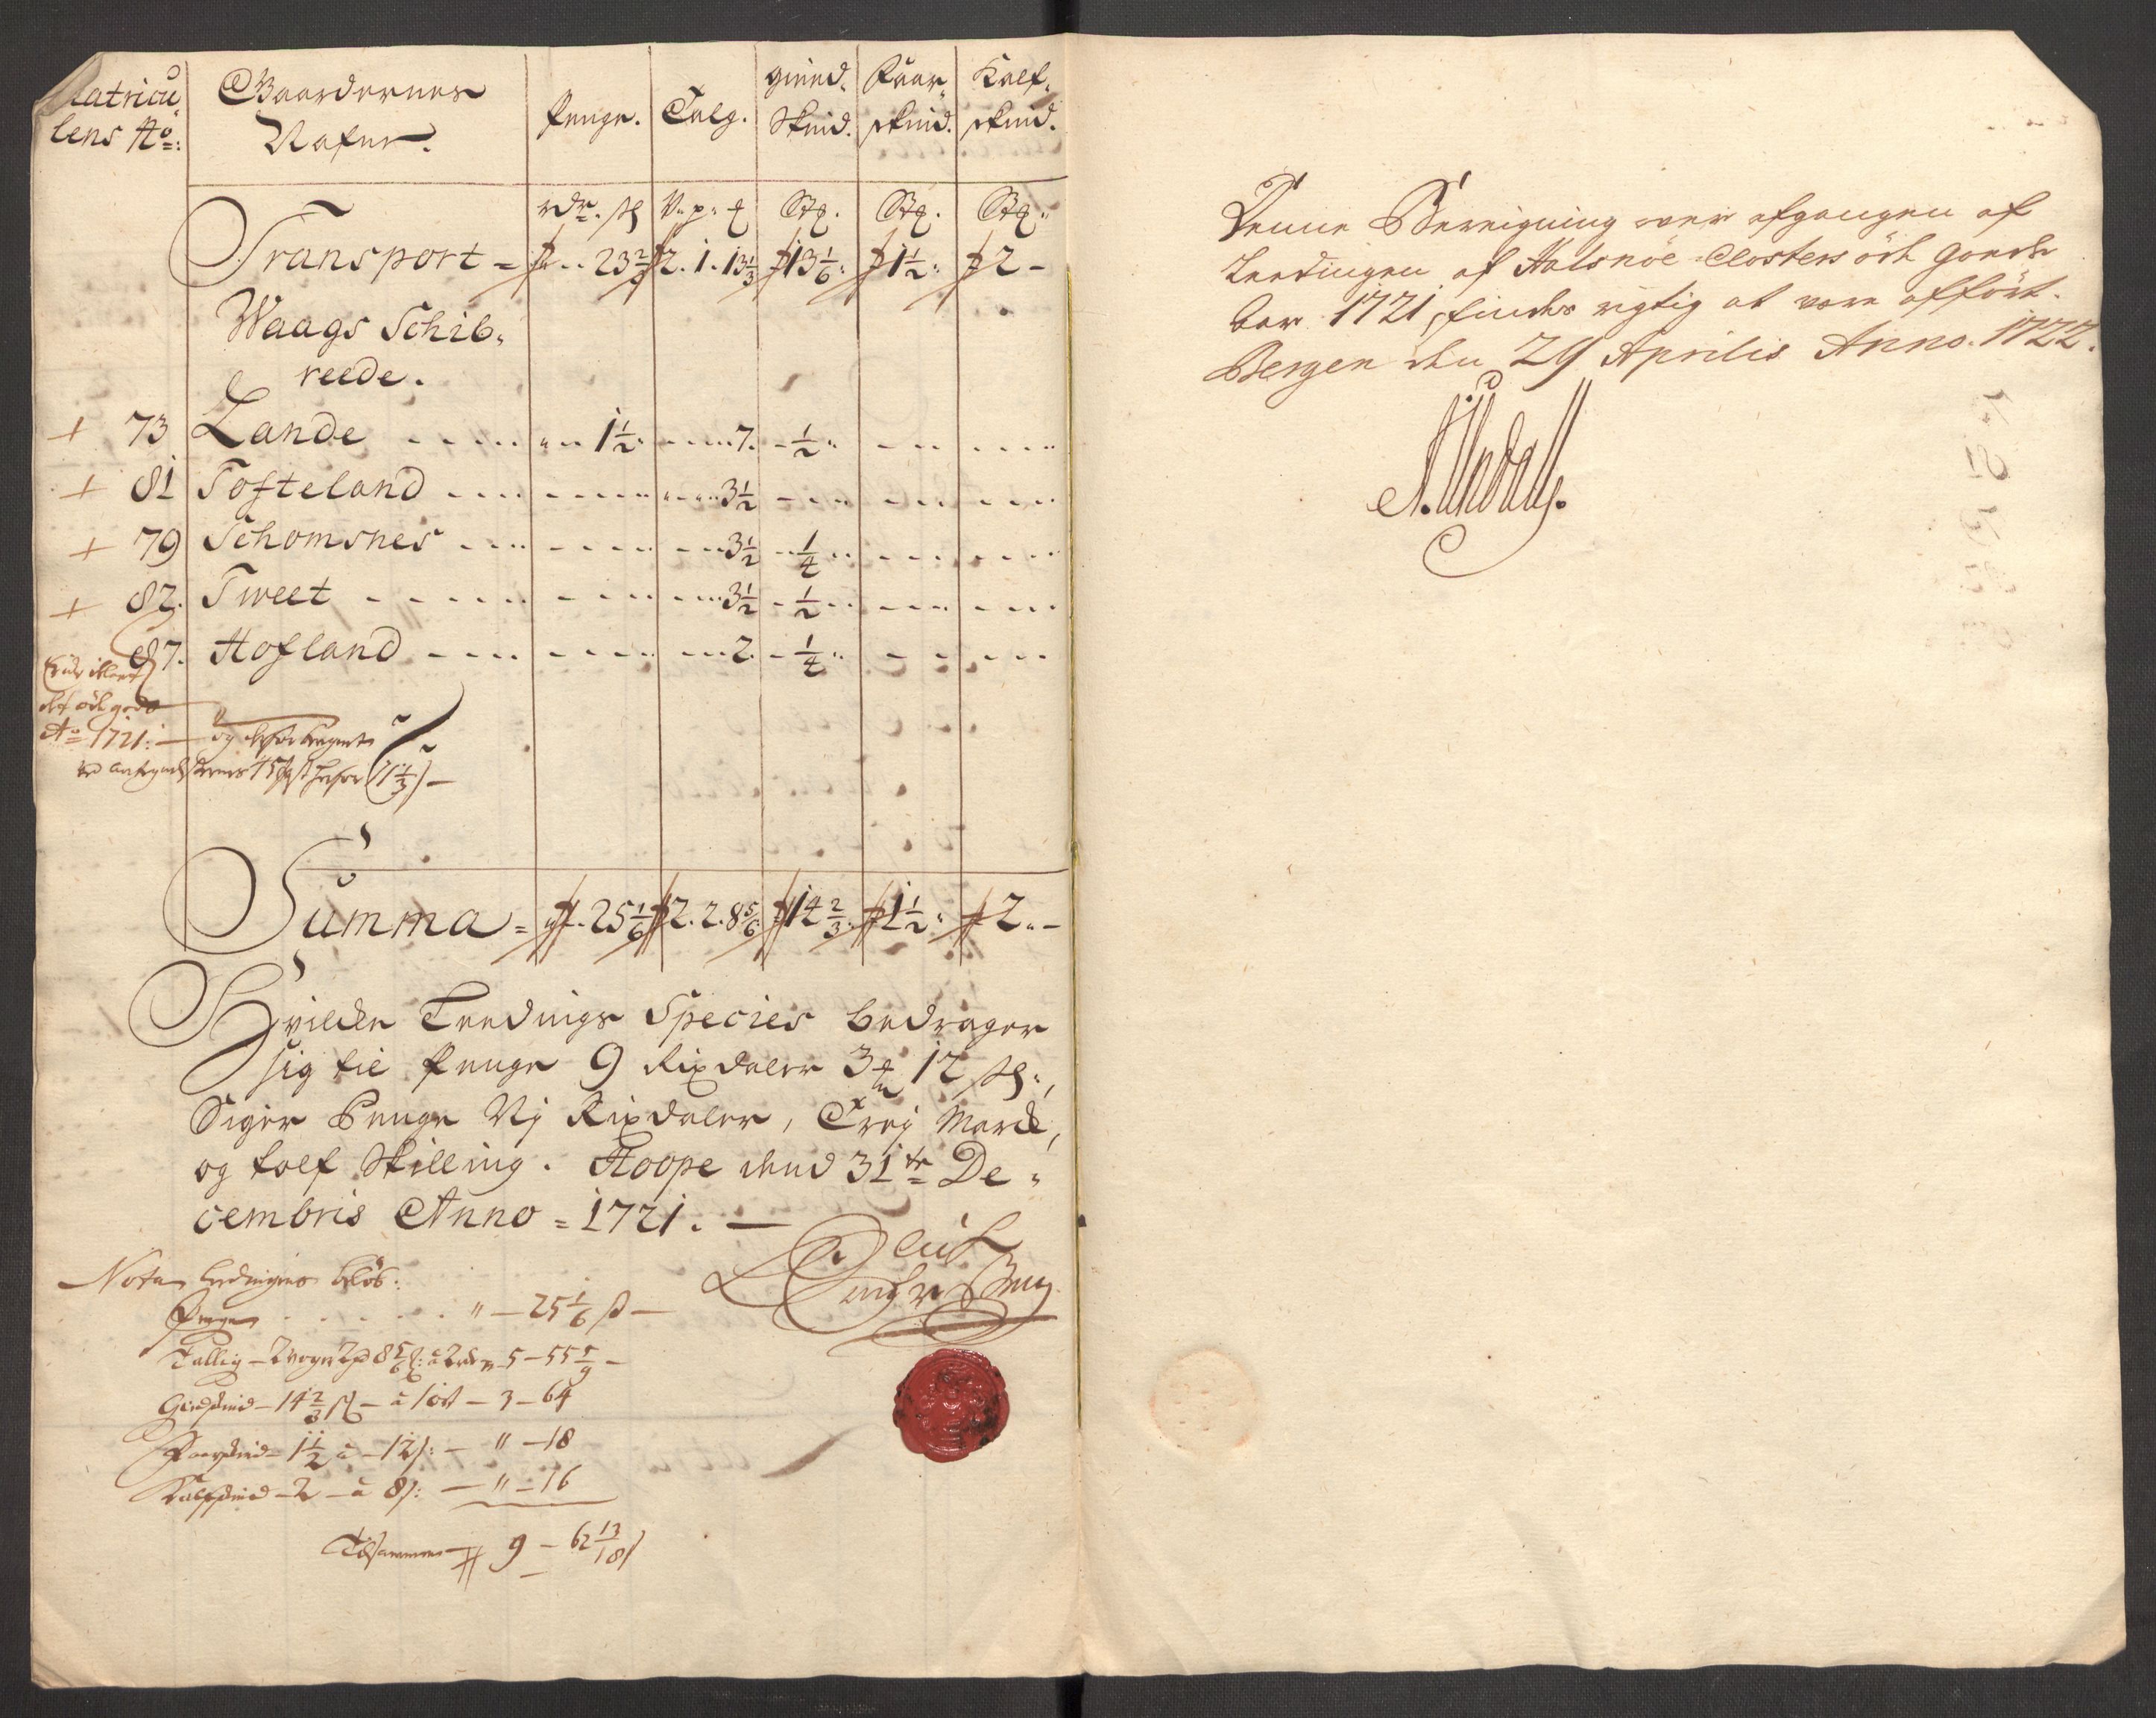 Matricu
lens No:
Gaardernes
Nafne.
Penge.
Talg.
Gied-
Skind.
Faar-
skind.
Kalf-
skind.
rdr. sk
V. p. 
Stk.
Stk.
Stk.
Transport = 23 2/3 2. 1. 13 1/3 13 1/6 1 1/2 2 -
Waags Schib-
reede.
+ 73 Lande 1 1/2 7. 1/2
+ 81 Tofteland 3 1/2
+ 79 Schomsnes 3 1/2 1/4
+ 82. Tweet 3 1/2 1/2
87. Hofland 2. 1/4
det öde gods
Ao 1721:
Summa = 25 1/6 2. 2. 8 5/6 14 2/3 1 1/2 2. -
Hvilcke Leedings Species bedrager
sig til Penge 9 Rixdaler 3 12 sk:,
Siger Penge Nj Rixdaler, Trej Marck,
og tolf Skilling. Hoope dend 31te De-
cembris Anno = 1721. —
Nota Ledingens beløb:
Penge " — 25 1/6 s —
Tallig — 2 voger 2 p 8 5/6 : a 2 rdr — 5 — 55 5/9 —
Giedskind — 14 2/3 — a 1 ort — 3 — 64
Faarskind — 1 1/2 a — 12 s: — " — 18
Kalfskind — 2 — a 8 s: — " — 16
Tilsammen 9 — 62 13/18 s
Denne Bereigning over afgangen af
Leedingen af Halsnöe Closters öde Goeds
for 1721, findes rigtig at vere afført.
Bergen den 29 Aprilis Anno. 1722.